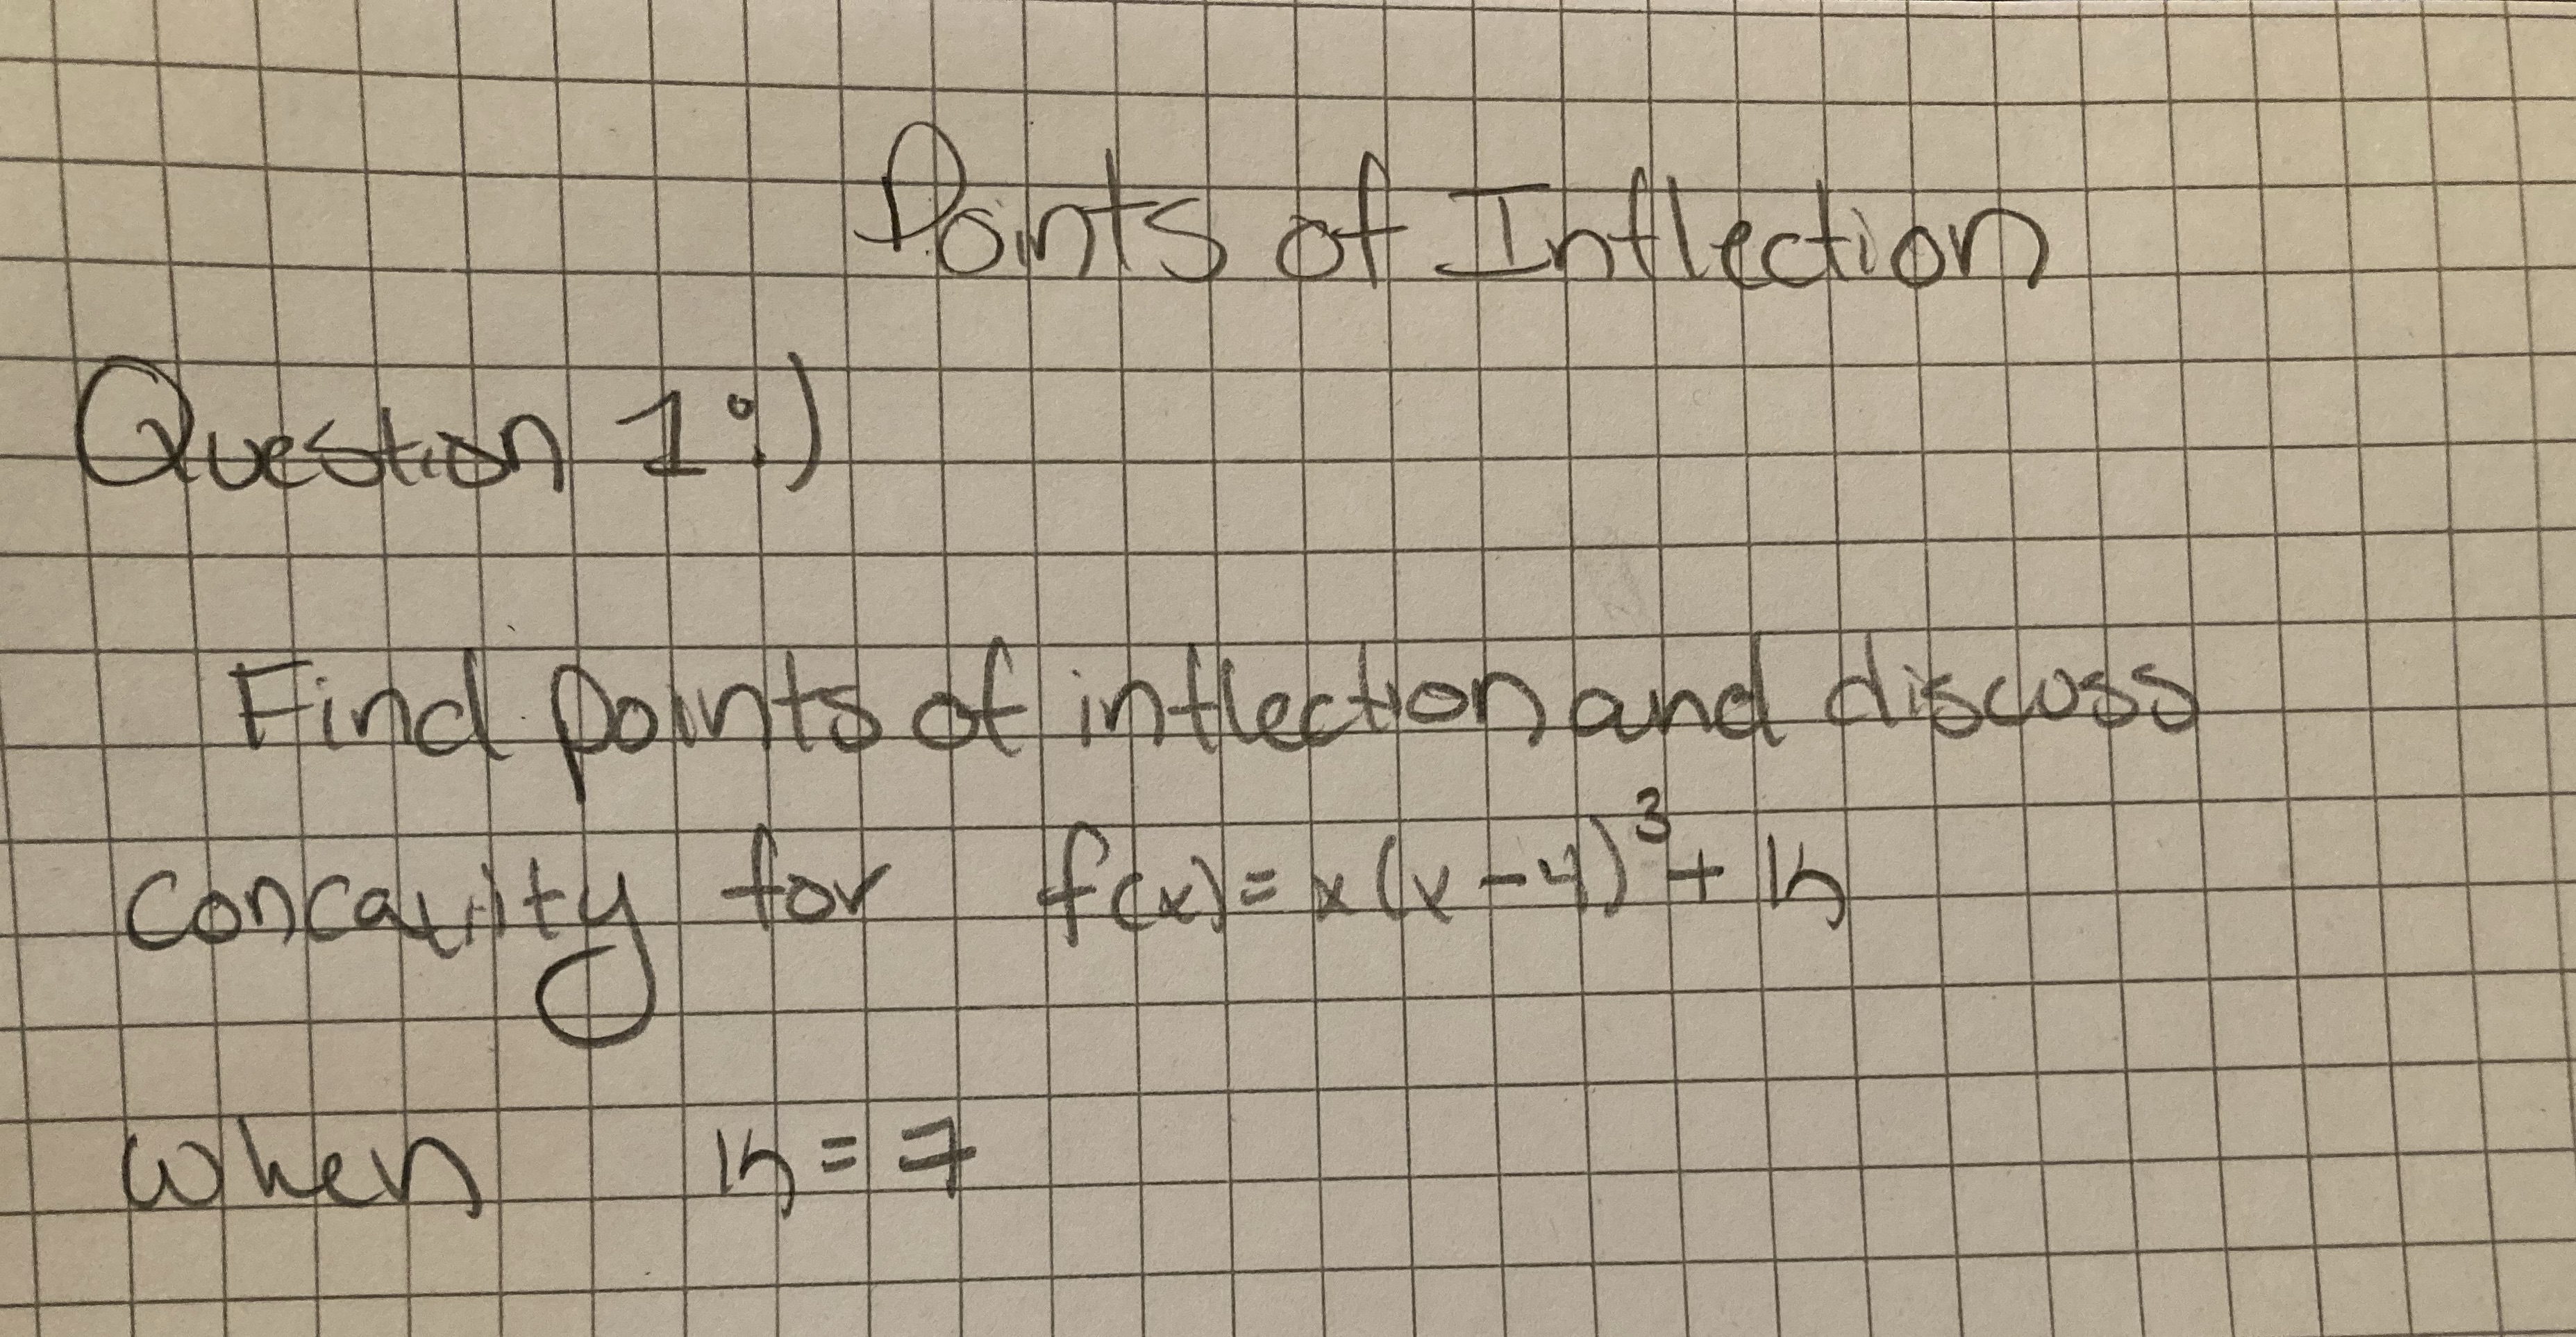 Points of Inflection
Question 1:)
Find points of inflection and discuss
concavity for f(x)= x(x-4)³+ k
when k=7